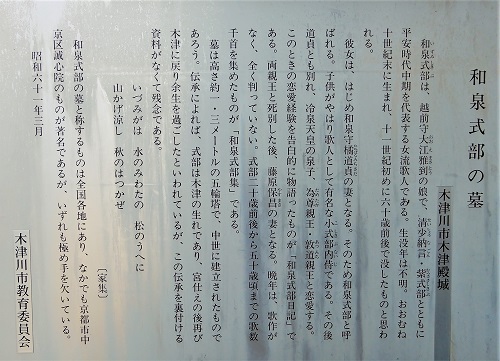 和泉式部の墓
木津川市木津殿城
和泉式部は、越前守大江雅到の娘で、清少納言・紫式部とともに
平安時代中期を代表する女流歌人である。生没年は不明。おおむね
十世紀末に生まれ、十一世紀初めに六十歳前後で没したものと思わ
れる。
彼女は、はじめ和泉守橘道貞の妻となる。そのため和泉式部と呼
ばれる。子供がやはり歌人として有名な小式部内侍である。その後
道貞とも別れ、冷泉天皇の皇子、為尊親王・敦道親王と恋愛する。
このときの恋愛経験を告白的に物語ったものが「和泉式部日記」で
ある。両親王と死別した後、藤原保昌の妻となる。晩年は、歌作が
なく、全く判っていない。式部二十歳前後から五十歳頃までの歌数
千首を集めたものが「和泉式部集」である。
墓は高さ約一・三メートルの五輪塔で、中世に建立されたもので
あろう。伝承によれば、式部は木津の生れであり、宮仕えの後再び
木津に戻り余生を過ごしたといわれているが、この伝承を裏付ける
資料がなくて残念である。
いづみがは 水のみわたの 松のうへに
山かげ涼し 秋のはつかぜ
〔家集〕
和泉式部の墓と称するものは全国各地にあり、なかでも京都市中
京区誠心院のものが著名であるが、いずれも極め手を欠いている。
昭和六十一年三月
木津川市教育委員会